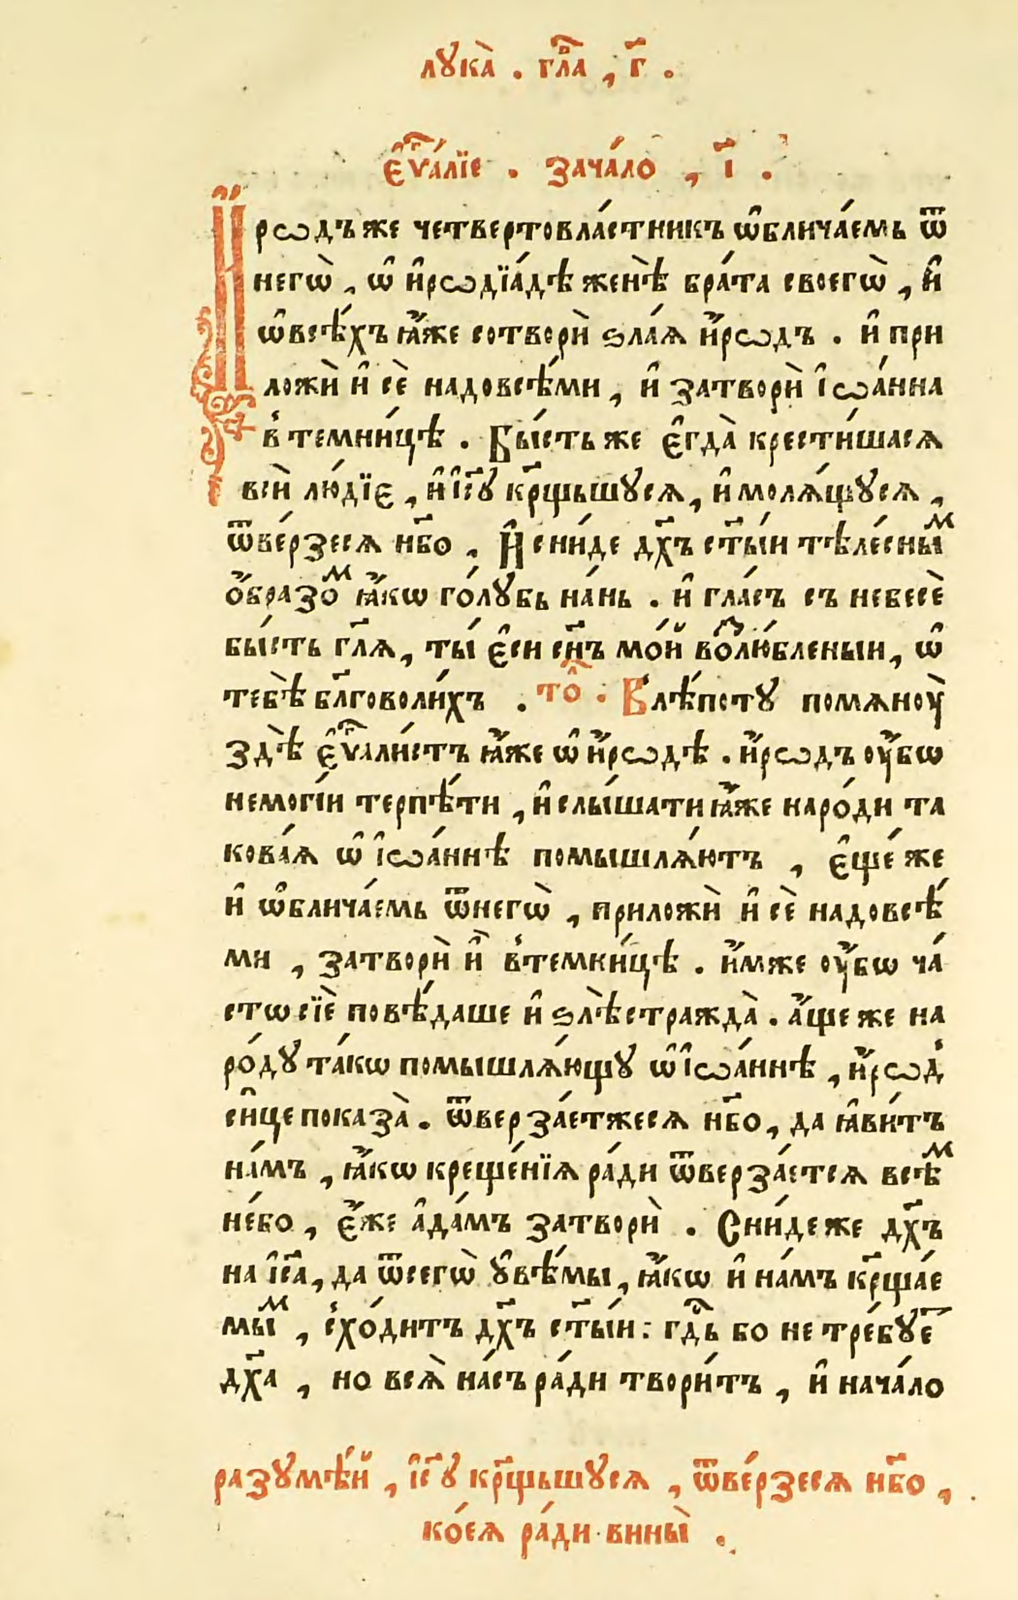 лꙋка̀ . гл҃а , г҃ .
є҆ѵⷢ҇а́лїе . зача́ло , і҃ .
И҆́рѡдъ же четвертовла́стникъ ѡ҆блича́емь ѿ
негѡ̀ , ѡ҆ и҆рѡдїа́дѣ женѣ̀ бра́та своегѡ̀ , и҆
ѡ҆всѣ́хъ ꙗ҆́же сотворѝ ѕла́ѧ и҆́рѡдъ . и҆ при
ложѝ и҆ сѐ надовсѣ́ми , и҆ затворѝ і҆ѡа́нна
в̾ темни́цѣ . Бы́сть же є҆гда̀ крести́шасѧ
всѝ лю́дїе , и҆ і҆с҃ꙋ кр҃щьшꙋсѧ , и҆ молѧ́щꙋсѧ ,
ѿве́рзесѧ нб҃о . И҆ сни́де дх҃ъ ст҃ы́и тѣле́сныⷨ
ѻ҆́бразоⷨ ꙗ҆́кѡ го́лꙋбь на́нь . и҆ гла́съ съ небесѐ
бы́сть гл҃ѧ , ты̀ є҆си сн҃ъ мо́й воⷥлю́бленыи , ѡ҆
тебѣ̀ бл҃говоли́хъ . то̑ . В лѣ́потꙋ помѧнꙋ̀
здѣ̀ є҆ѵⷢ҇али́стъ ꙗ҆́же ѡ҆ и҆́рѡдѣ . и҆́рѡдъ ᲂу҆́бѡ
немоги́и терпѣ́ти , и҆ слы́шати ꙗ҆́же наро́ди та
кова́ѧ ѡ҆ і҆ѡа́ннѣ помышлѧ́ютъ , є҆ще́ же
и҆ ѡ҆блича́емь ѿнегѡ̀ , приложѝ и҆ сѐ надовсѣ́
ми , затворѝ и҆̀ в̾темни́цѣ . и҆́мже ᲂу҆́бѡ ча́
стѡ сїѐ повѣ́даше и҆ ѕлѣ̀ стражда̀ . а҆́ще же на
ро́дꙋ та́кѡ помышлѧ́ющꙋ ѡ҆ і҆ѡа́ннѣ , и҆́рѡд̾
си́це показа̀ . ѿверза́етжесѧ нб҃о , да ꙗ҆ви́тъ
на́мъ , ꙗ҆́кѡ креще́нїѧ ра́ди ѿверза́етсѧ всѣⷨ
не́бо , є҆́же а҆да́мъ затворѝ . Сни́де же дх҃ъ
на і҆с҃а , да ѿсегѡ̀ ᲂу҆вѣ́мы , ꙗ҆́кѡ и҆ на́мъ кр҃ща́е
мыⷨ , схо́дитъ дх҃ъ ст҃ы́и : гд҃ь бо не тре́бꙋеⷮ
дх҃а , но всѧ̀ на́съ ра́ди твори́тъ , и҆ нача́ло
разꙋмѣ́й , і҆с҃ꙋ кр҃щьшꙋсѧ , ѿве́рзесѧ нб҃о ,
ко́еѧ ра́ди вины̀ .